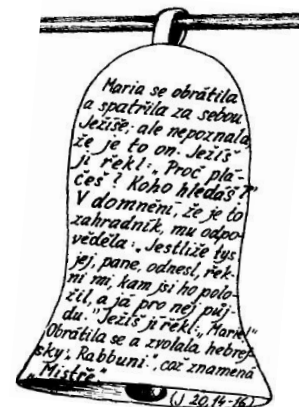 Maria se obrátila
a spatřila za sebou
Ježíše, ale nepoznala,
že je to on. Ježíš
jí řekl: „Proč plá-
češ? Koho hledáš?"
V domnění, že je to
zahradník, mu odpo-
věděla: „Jestliže tys
jej, pane, odnesl, řek-
ni mi, kam jsi ho polo-
žil, a já pro něj půj-
du." Ježíš jí řekl: „Marie!"
Obrátila se a zvolala hebrej-
sky: „Rabbuni", což znamená
„Mistře."
(J 20,14-16)